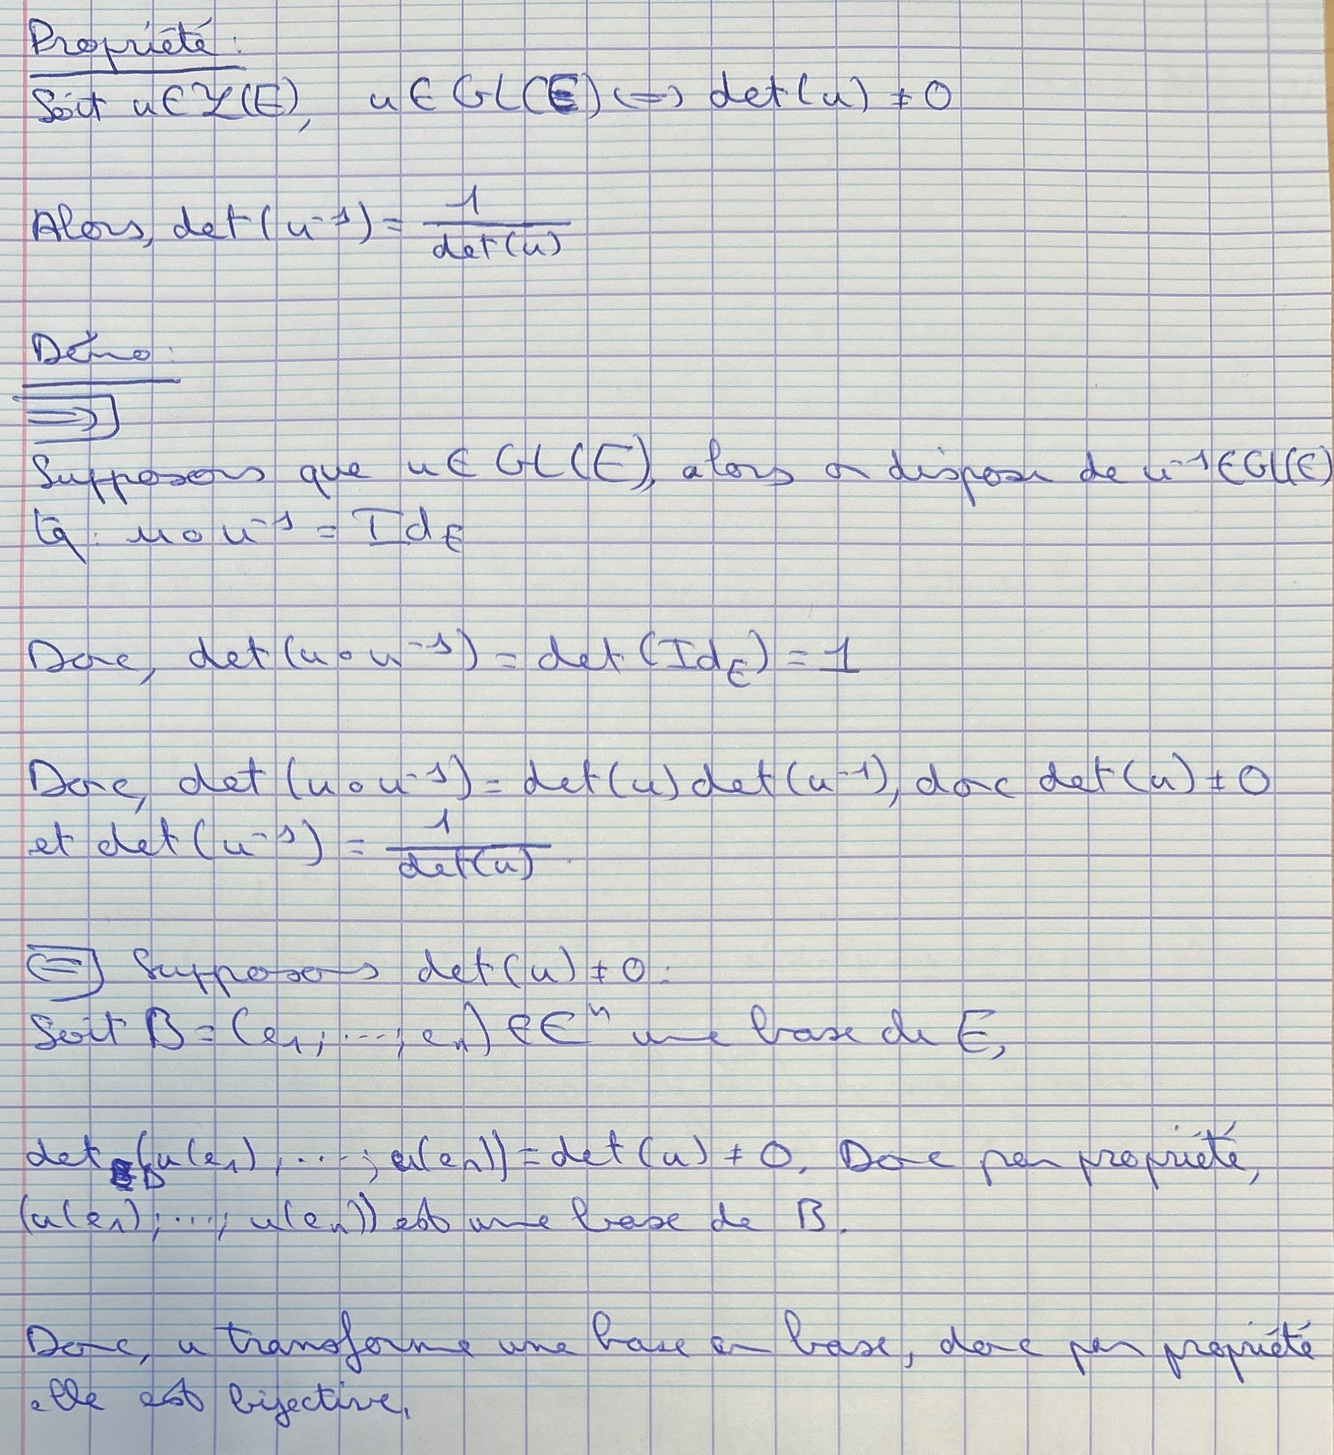 Propriété :
Soit u ∈ ℒ(E), u ∈ GL(E) <=> det(u) ≠ 0
Alors, det(u⁻¹) = 1/det(u)
Démo :
=>
Supposons que u ∈ GL(E), alors on dispose de u⁻¹ ∈ GL(E)
tq : u o u⁻¹ = Id_E
Donc, det(u o u⁻¹) = det(Id_E) = 1
Donc, det(u o u⁻¹) = det(u) det(u⁻¹), donc det(u) ≠ 0
et det(u⁻¹) = 1/det(u).
<= Supposons det(u) ≠ 0.
Soit B = (e₁ ; ... ; eₙ) ∈ Eⁿ une base de E,
det_B(u(e₁) ; ... ; u(eₙ)) = det(u) ≠ 0. Donc par propriété,
(u(e₁) ; ... ; u(eₙ)) est une base de B.
Donc, u transforme une base en base, donc par propriété
elle est bijective.